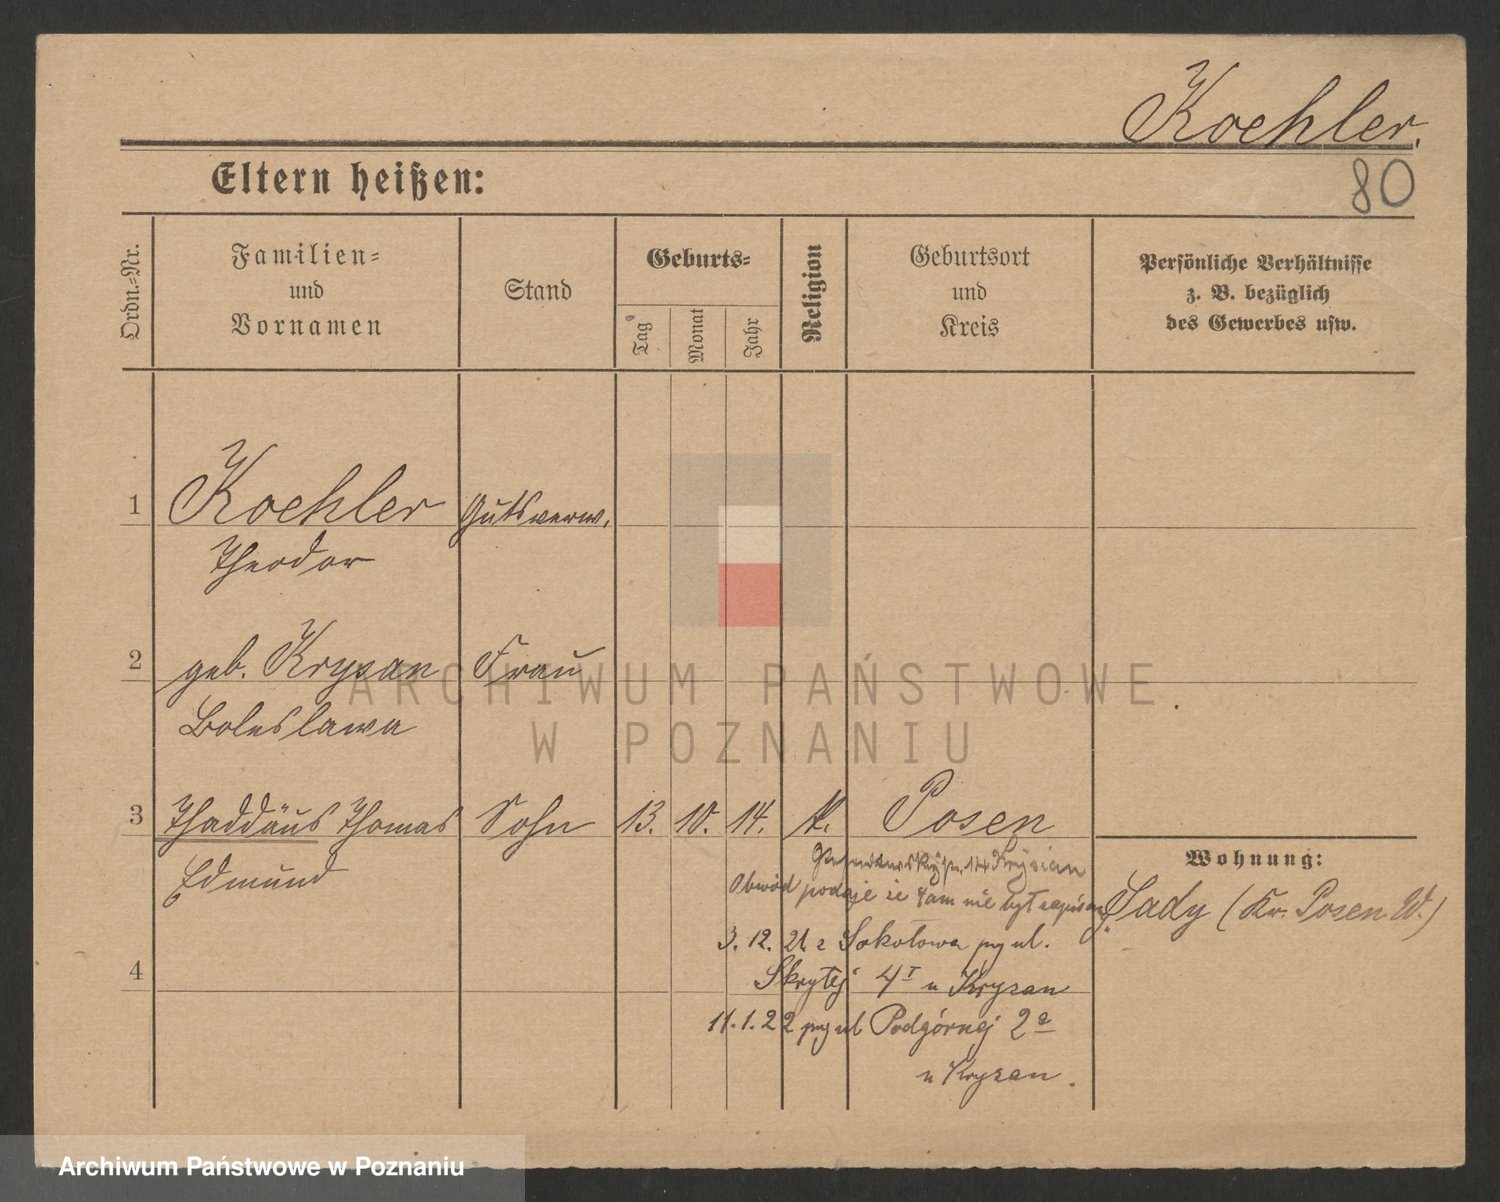 Koehler.
80
Eltern heißen:
Ordn.=Nr.
Familien=
und
Vornamen
Stand
Geburts=
Tag
Monat
Jahr
Religion
Geburtsort
und
Kreis
Persönliche Verhältnisse
z. B. bezüglich
des Gewerbes usw.
1 Koehler Gutsverw.
Theodor
2 geb. Krysan Frau
Boleslawa
3 Thaddäus Thomas Sohn 13. 10. 14. k. Posen
Edmund
Wohnung:
Krysian
Obwód podaje że tam nie był zapisany
Sady (Kr. Posen W.)
3. 12. 21. z Sokołowa przy ul.
4 Skrytej 4 I u Kryzan
11. 1. 22 przy ul Podgórnej 2a
u Kryzan.
ARCHIWUM PAŃSTWOWE
W POZNANIU
Archiwum Państwowe w Poznaniu